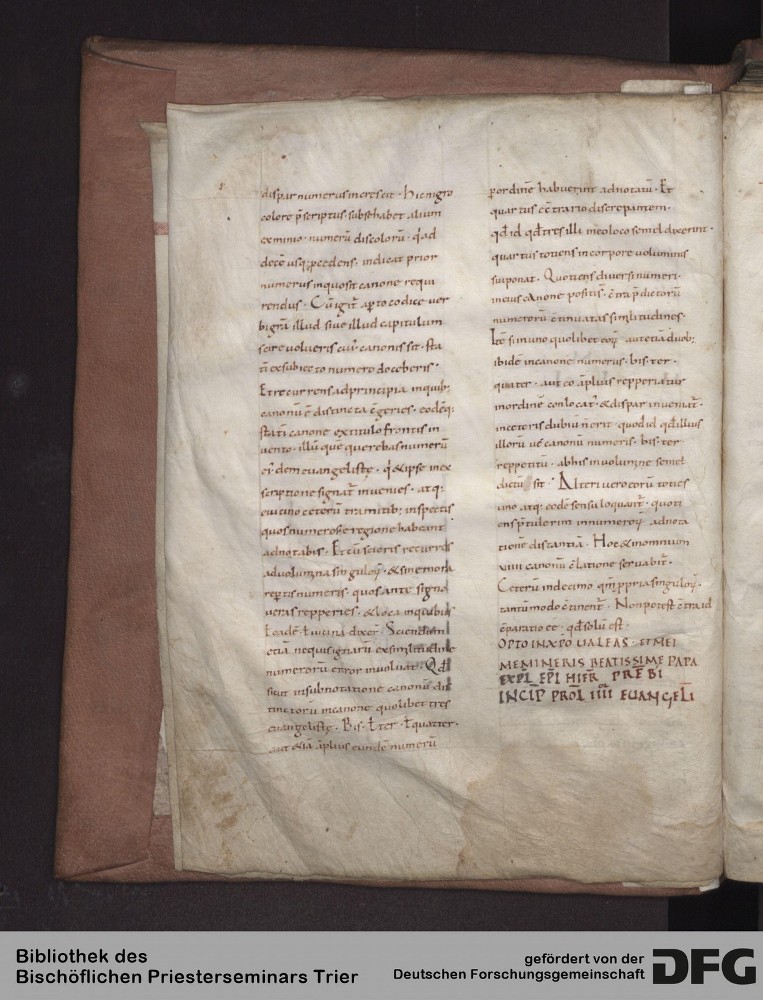 dispar numerus increscit · hic nigro
colore p̄scriptus · subse habet alium
ex minio · numerū discolorū · q̇ ad
decē usq; ꝓcedens · indicat prior
numerus in quo sit canone requi
rendus · Cū igit̄ apto codice ver
bi grā illud siue illud capitulum
scire uolueris cui' canonis sit · sta
tī ex subiecto numero doceberis ·
Et recurrens ad principia in quib;
canonū ē distincta cgeries · eodēq;
statī canone ex titulo frontis in
uento · illū quē querebas numerū
ei'dem euangelistę · q̇ & ipse in ex
scriptione signat̄ inuenies · atq;
e uicino ceterū tramitib; inspectis
quos numeros e regione habeant
adnotabis · Et cū scieris recurres
ad uolumina singuloꝝ · & sine mora
reptis numeris · quos ante signa
ueras repperies · & loca in quibus
ł eadē · ł uicina dixer̄ · Sciendum
etiā nequis ignarū ex similitudine
numerorū error inuoluat · Qđ
sicut in subnotatione canonū dis
tinctorū in canone quolibet tres
euangelistę · Bis · ł ter · ł quater ·
aut etiā āplius eundē numerū
ꝑ ordinē habuerint adnotatū · Et
quartus cētrario discrepantem ·
qđ id qđ tres illi in eo loco semel dixerint ·
quartus totiens in corpore uoluminis
sui ponat · Quotiens diuersi numeri ·
in eius canone positis · ctra p̄dictorū
numerorū ctinuatas similitudines ·
Itē si in uno quolibet eoꝝ aut etiā duob;
ibidē in canone numerus · bis · ter ·
quater · aut eo āplius reppperiatur
in ordinē conlocat' · & dispar inueniat̄ ·
in ceteris dubiū ñ erit · quod id qđ illius
illorū ue canonū numeris · bis · ter ·
reppetitū · ab his in uolumine semel
dictū sit · Alteri uero eorū toties
uno atq; eodē sensu loquant̄ · quoti
ens ptulerint in numeroꝝ adnota
tione distantiā · Hoc & in omnium
viiii canonū clatione seruabit̄ ·
Ceterū in decimo qm̄ ppria singuloꝝ ·
tantū modo ctinent̄ · Non potest ctra id
cparatio ee · qđ solū est ·
OPTO IN XPO UALEAS · ET MEI
MEMINERIS BEATISSIME PAPA
EXPL EPL HIER PRĒBI
INCIP PROL IIII EUANGELI
Bibliothek des
Bischöflichen Priesterseminars Trier
gefördert von der
Deutschen Forschungsgemeinschaft
DFG